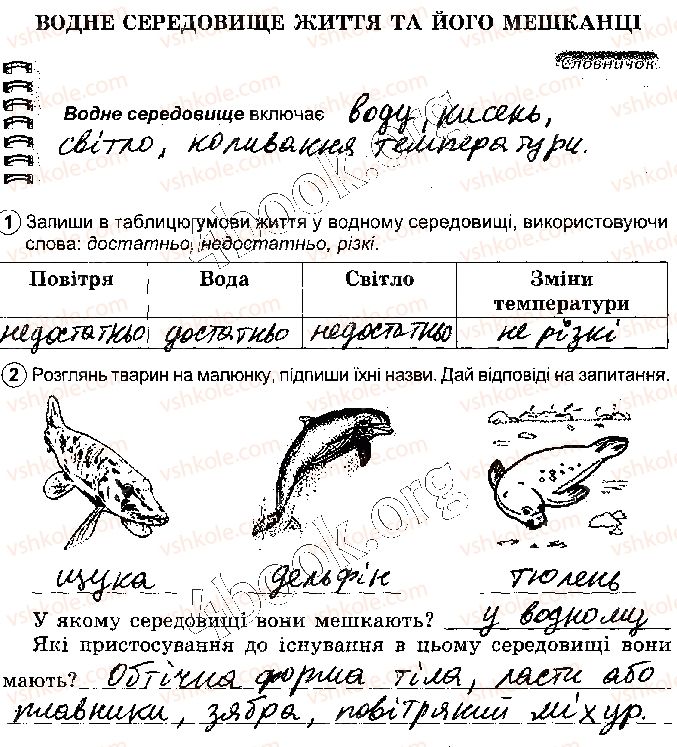 ВОДНЕ СЕРЕДОВИЩЕ ЖИТТЯ ТА ЙОГО МЕШКАНЦІ
Словничок
Водне середовище включає воду, кисень,
світло, коливання температури.
1 Запиши в таблицю умови життя у водному середовищі, використовуючи
слова: достатньо, недостатньо, різкі.
Повітря Вода Світло Зміни температури
недостатньо достатньо недостатньо не різкі
2 Розглянь тварин на малюнку, підпиши їхні назви. Дай відповіді на запитання.
щука дельфін тюлень
У якому середовищі вони мешкають? у водному
Які пристосування до існування в цьому середовищі вони
мають? Обтічна форма тіла, ласти або
плавники, зябра, повітряний міхур.
4book.org
vshkole.com